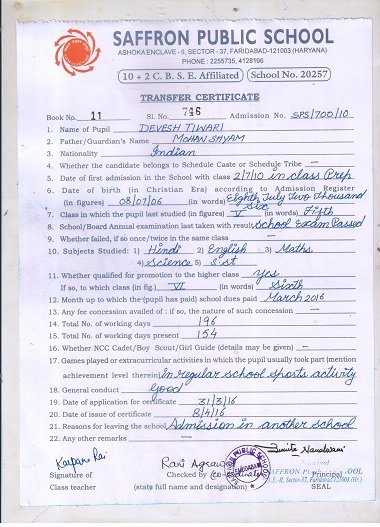 SAFFRON PUBLIC SCHOOL
ASHOKA ENCLAVE - II, SECTOR - 37, FARIDABAD-121003 (HARYANA)
PHONE : 2255735, 4128196
10 + 2 C. B. S. E. Affiliated School No. 20257
TRANSFER CERTIFICATE
Book No. 11 Sl. No. 746 Admission No. SPS/700/10
1. Name of Pupil DEVESH TIWARI
2. Father/Guardian's Name MOHAN SHYAM
3. Nationality Indian
4. Whether the candidate belongs to Schedule Caste or Schedule Tribe —
5. Date of first admission in the School with class 2/7/10 in class Prep
6. Date of birth (in Christian Era) according to Admission Register
(in figures) 08/07/06 (in words) Eighth July Two Thousand Six
7. Class in which the pupil last studied (in figures) V (in words) Fifth
8. School/Board Annual examination last taken with result School Exam Passed
9. Whether failed, if so once/twice in the same class —
10. Subjects Studied: 1) Hindi 2) English 3) Maths
4) Science 5) S.st
11. Whether qualified for promotion to the higher class Yes
If so, to which class (in fig.) VI (in words) Sixth
12. Month up to which the (pupil has paid) school dues paid March 2016
13. Any fee concession availed of : if so, the nature of such concession —
14. Total No. of working days 196
15. Total No. of working days present 154
16. Whether NCC Cadet/Boy Scout/Girl Guide (details may be given) —
17. Games played or extracurricular activities in which the pupil usually took part (mention
achievement level therein) In regular school sports activity
18. General conduct Good
19. Date of application for certificate 31/3/16
20. Date of issue of certificate 8/4/16
21. Reasons for leaving the school Admission in another school
22. Any other remarks —
Kalpana Rai
Signature of
Class teacher
Checked by (co-ordinator)
(state full name and designation)
Principal
SAFFRON PUBLIC
Principal
SEAL